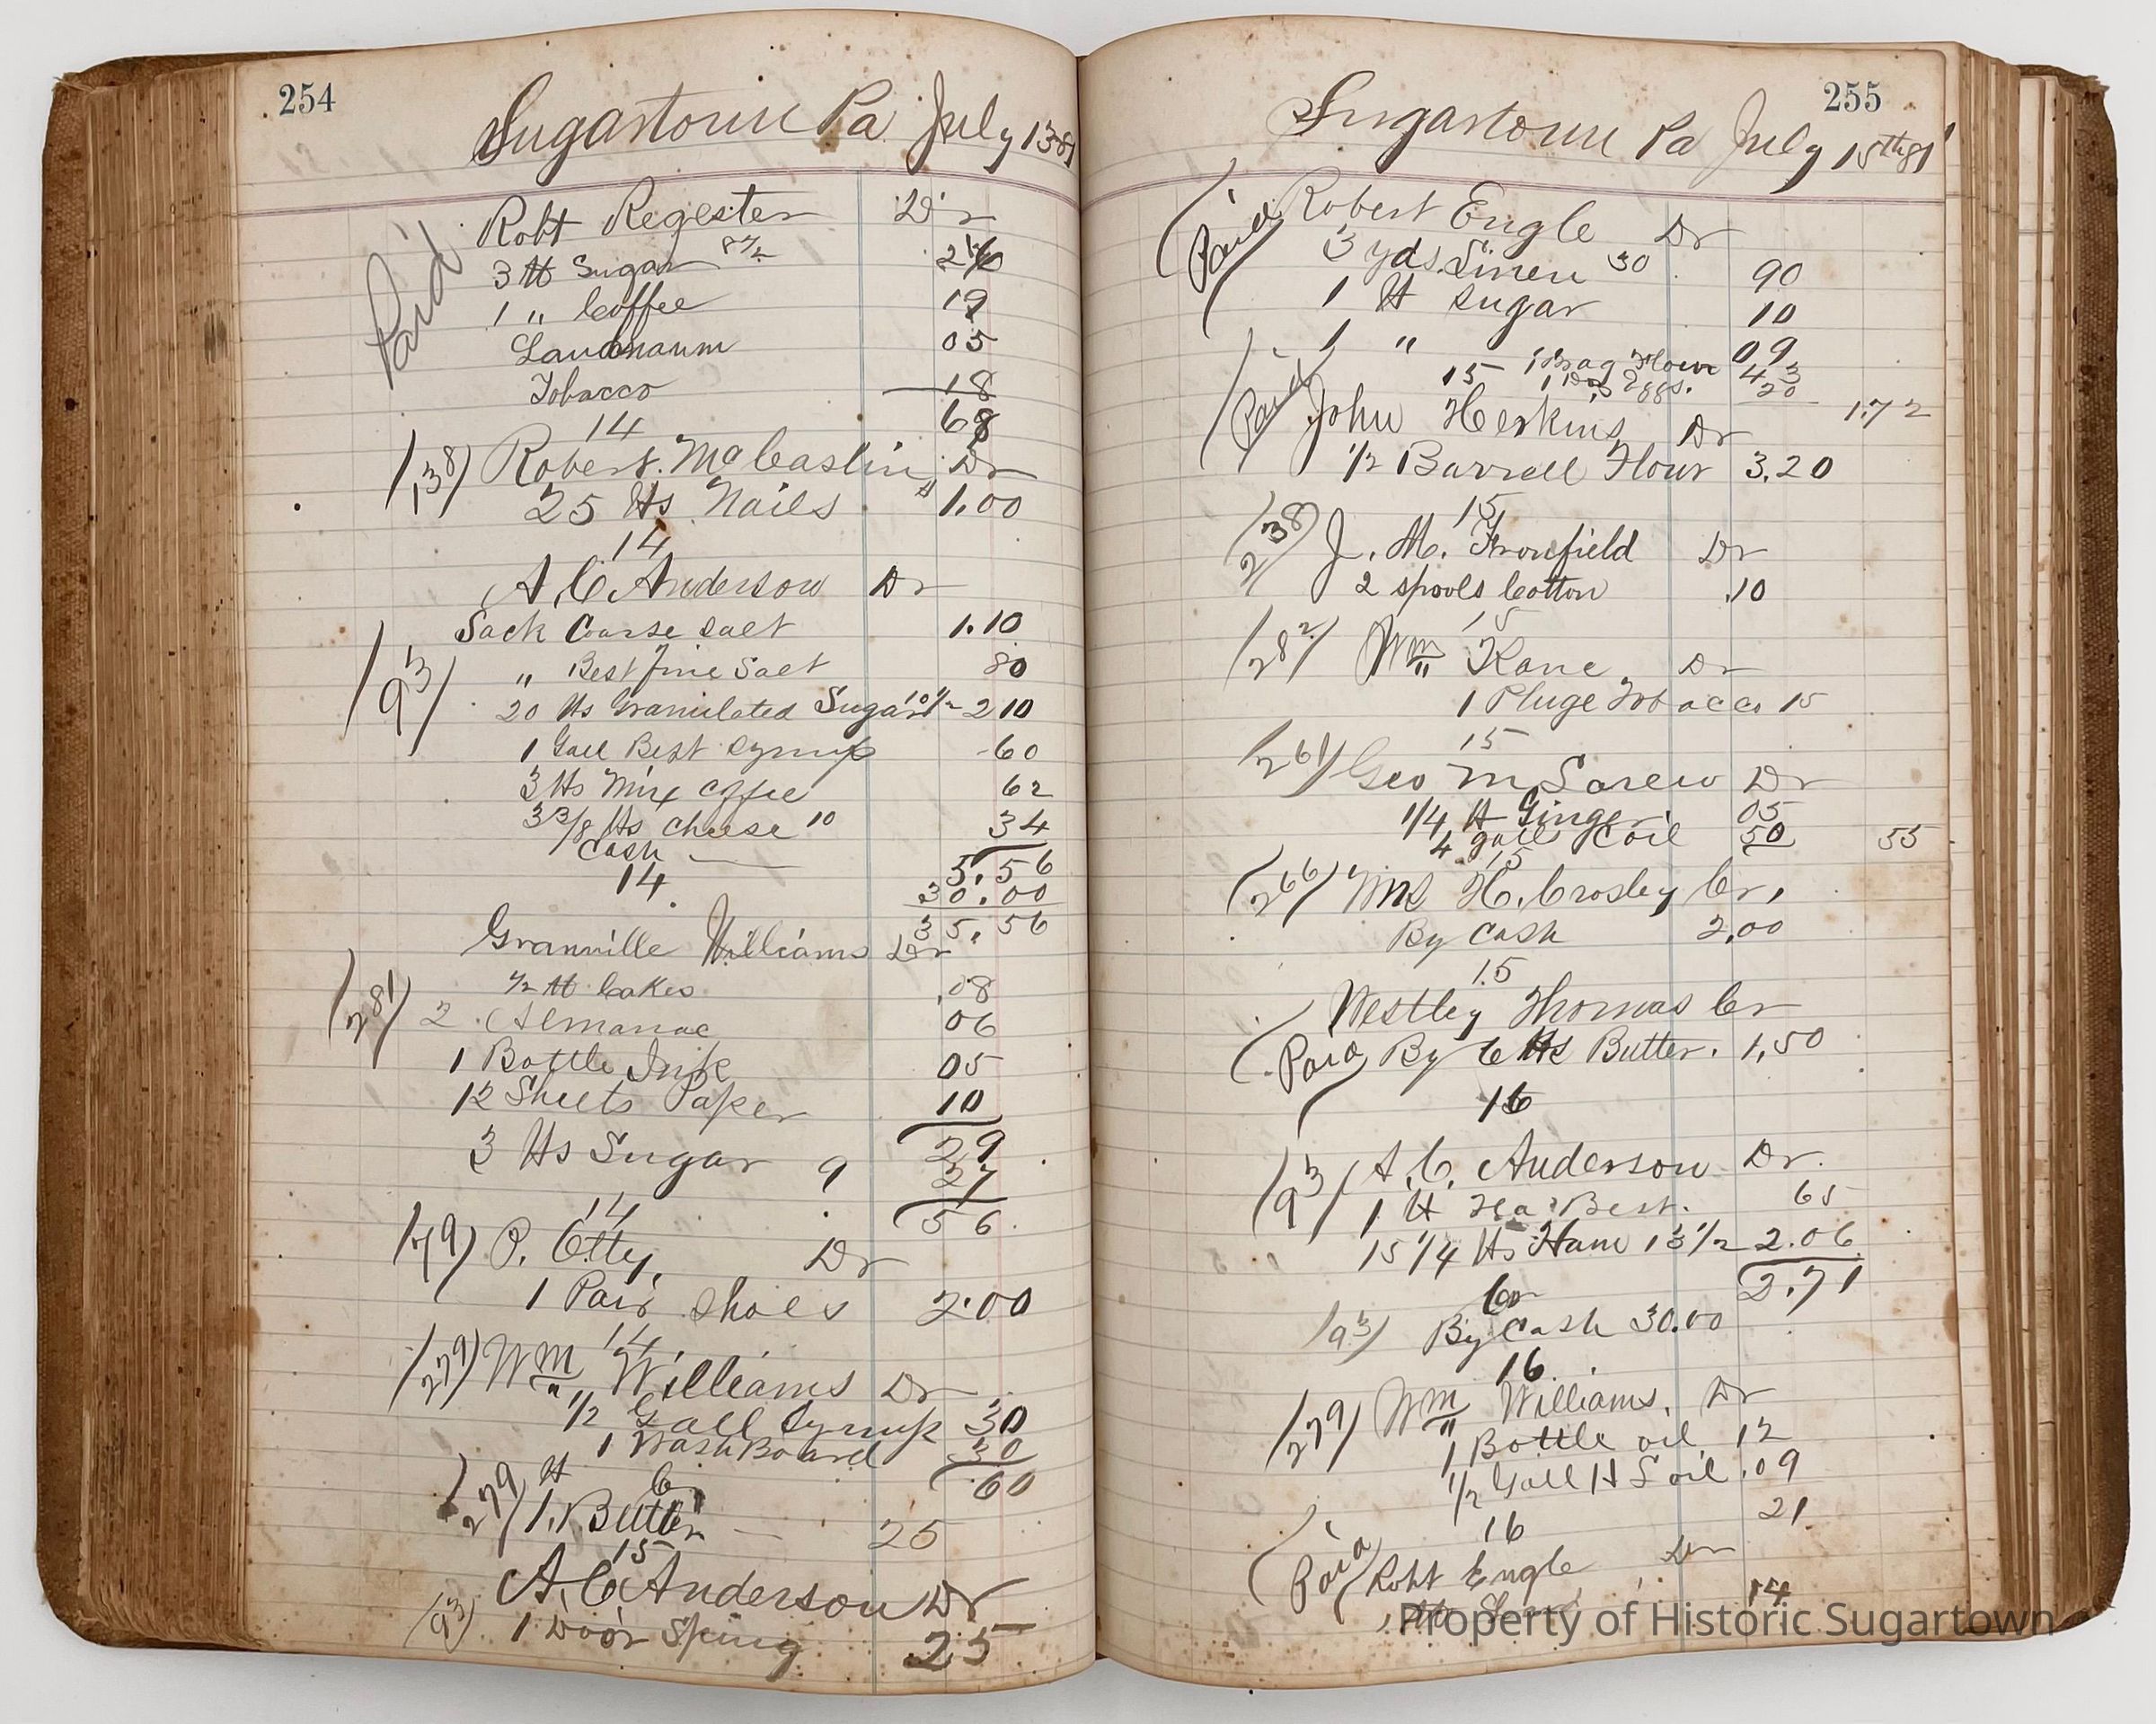 254
Sugartown Pa July 13 81
Paid
Robt Regester Dr
3 ℔ Sugar 8½ 26
1 " Coffee 19
Laudnaum 05
Tobacco 18
68
14
(138) Robert McCaslin Dr
25 ℔s Nails 1.00
14
A. C. Anderson Dr
(93)
Sack Coarse Salt 1.10
" Best Fine Salt 80
20 ℔s Granulated Sugar 10½ 2 10
1 Gall Best Syrup 60
3 ℔s Mix Coffee 62
3 3/8 ℔s Cheese 10 34
5.56
Cash 30.00
35.56
14
Granville Williams Dr
(281)
½ ℔ Cakes .08
2 Almanac 06
1 Bottle Ink 05
12 Sheets Paper 10
29
3 ℔s Sugar 9 27
56
14
(79) P. Etty, Dr
1 Pair Shoes 2.00
14
(279) Wm Williams Dr
1/2 Gall Syrup 30
1 Wash Board 30
60
Cr
(279) ℔ 1. Butter 25
15
A. C. Anderson Dr
(93) 1 Door Spring 25
255
Sugartown Pa July 15th 81
(Paid) Robert Engle Dr
3 yds Linen 30 90
1 ℔ Sugar 10
1 " 09
1 Bag Flour 43
15 1 Doz Eggs. 20
1.72
(Paid) John Herkins Dr
1/2 Barrell Flour 3.20
15
(238) J. M. Fronfield Dr
2 spools Cotton .10
15
(282) Wm Kane Dr
1 Pluge Tobacco 15
15
(261) Geo M Sarew Dr
1/4 ℔ Ginger 05
4 gall Coil 50 55
15
(266) Wm H. Crosley Cr,
By Cash 2.00
15
Westley Thomas Cr
(Paid) By 6 ℔s Butter. 1.50
16
(93) A. C. Anderson Dr.
1 ℔ Tea Best. 65
15 1/4 ℔s Ham 13 1/2 2.06
2.71
Cr
(93) By Cash 30.00
16
(279) Wm Williams, Dr
1 Bottle oil 12
1/2 Gall H S oil .09
21
16
(Paid) Robt Engle Dr
14
Property of Historic Sugartown